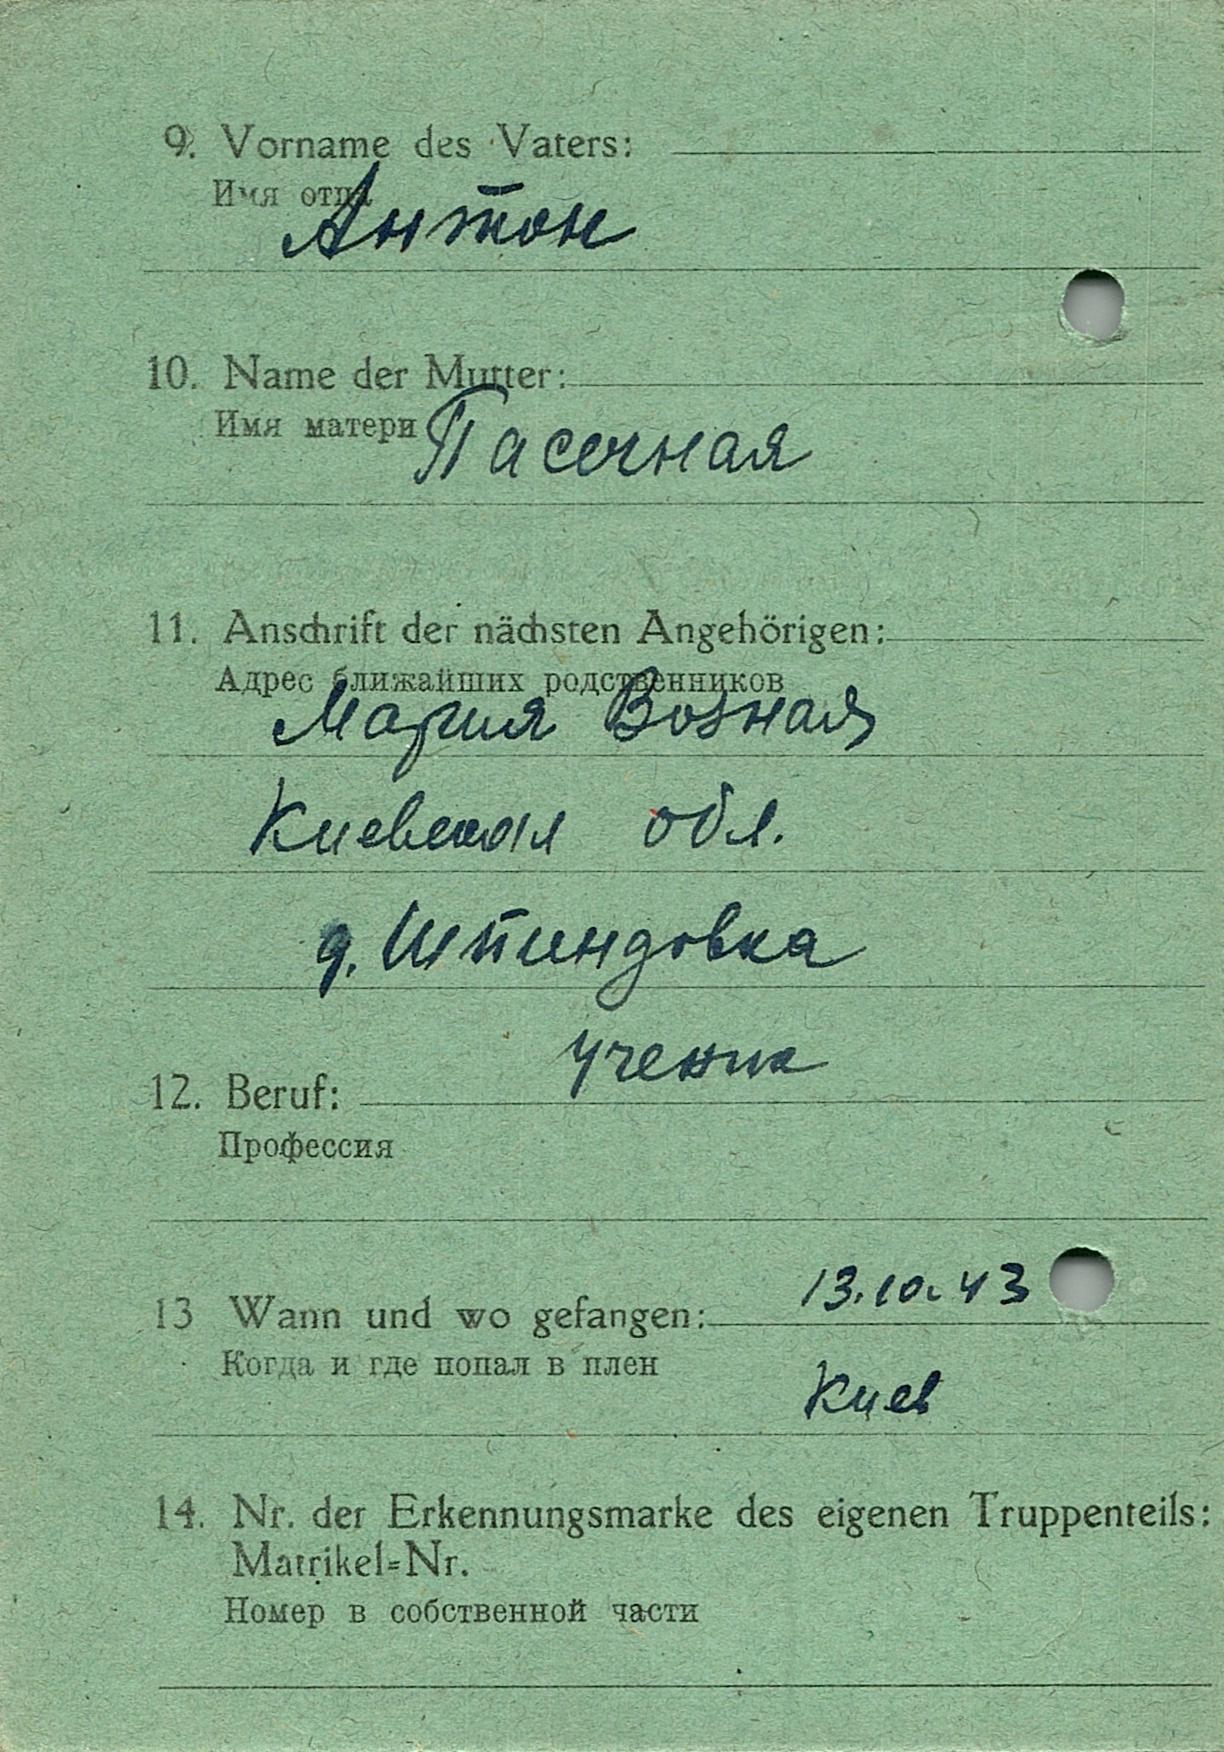 9. Vorname des Vaters:
Имя отца
Антон
10. Name der Mutter:
Имя матери
Пасечная
11. Anschrift der nächsten Angehörigen:
Адрес ближайших родственников
Мария Возная
Киевская обл.
д. Шпиндовка
ученик
12. Beruf:
Профессия
13.10.43
13 Wann und wo gefangen:
Когда и где попал в плен
Киев
14. Nr. der Erkennungsmarke des eigenen Truppenteils:
Matrikel=Nr.
Номер в собственной части